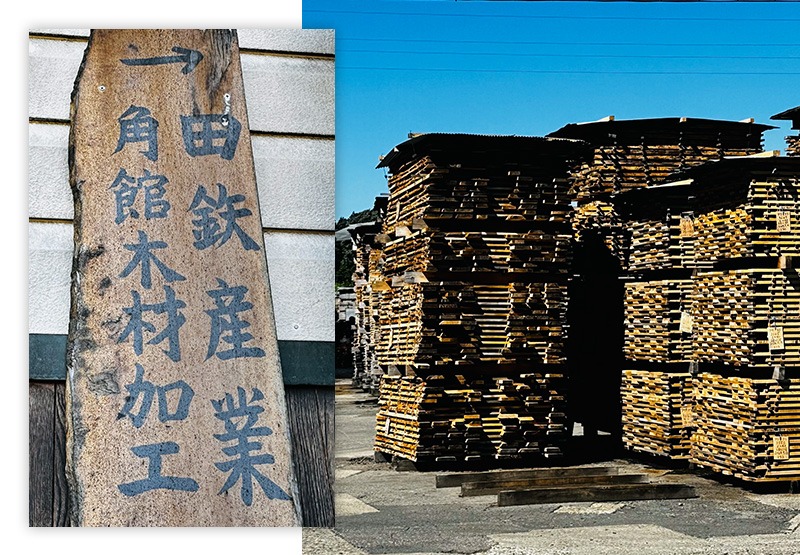 →
田鉄産業
角館木材加工